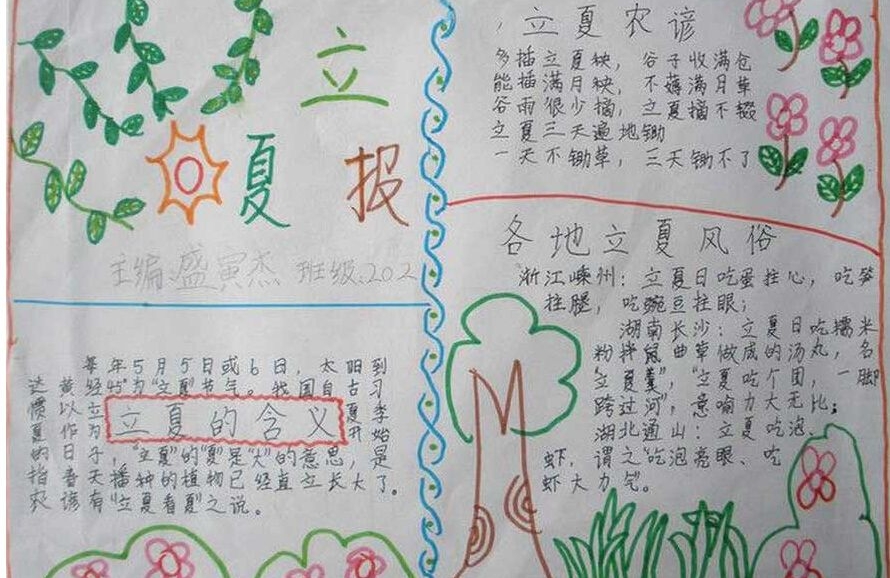 立
夏 报
主编:盛寅杰 班级:202
每年5月5日或6日，太阳到
达黄经45°为“立夏”节气。我国自古习
惯以立
夏
夏作为
季开始
立夏的含义
的日子，“立夏”的“夏”是“大”的意思，是
指春天播种的植物已经直立长大了。
农谚有“立夏看夏”之说。
立夏农谚
多插立夏秧，谷子收满仓
能插满月秧，不薅满月草
谷雨很少摘，立夏摘不辍
立夏三天遍地锄
一天不锄草，三天锄不了
各地立夏风俗
浙江嵊州：立夏日吃蛋拄心，吃笋
拄腿，吃豌豆拄眼；
湖南长沙：立夏日吃糯米
粉拌鼠曲草做成的汤丸，名
“立夏羹”，“立夏吃个团，一脚
跨过河”，意喻力大无比；
湖北通山：立夏吃泡、
虾，谓之“吃泡亮眼、吃
虾大力气”。